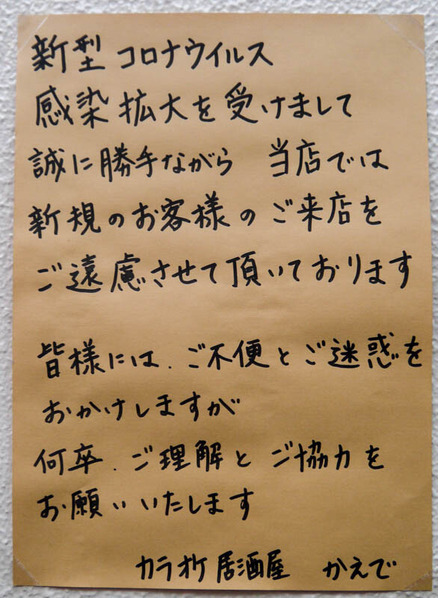 新型コロナウイルス
感染拡大を受けまして
誠に勝手ながら　当店では
新規のお客様のご来店を
ご遠慮させて頂いております
皆様には、ご不便とご迷惑を
おかけしますが
何卒、ご理解とご協力を
お願いいたします
カラオケ居酒屋　かえで